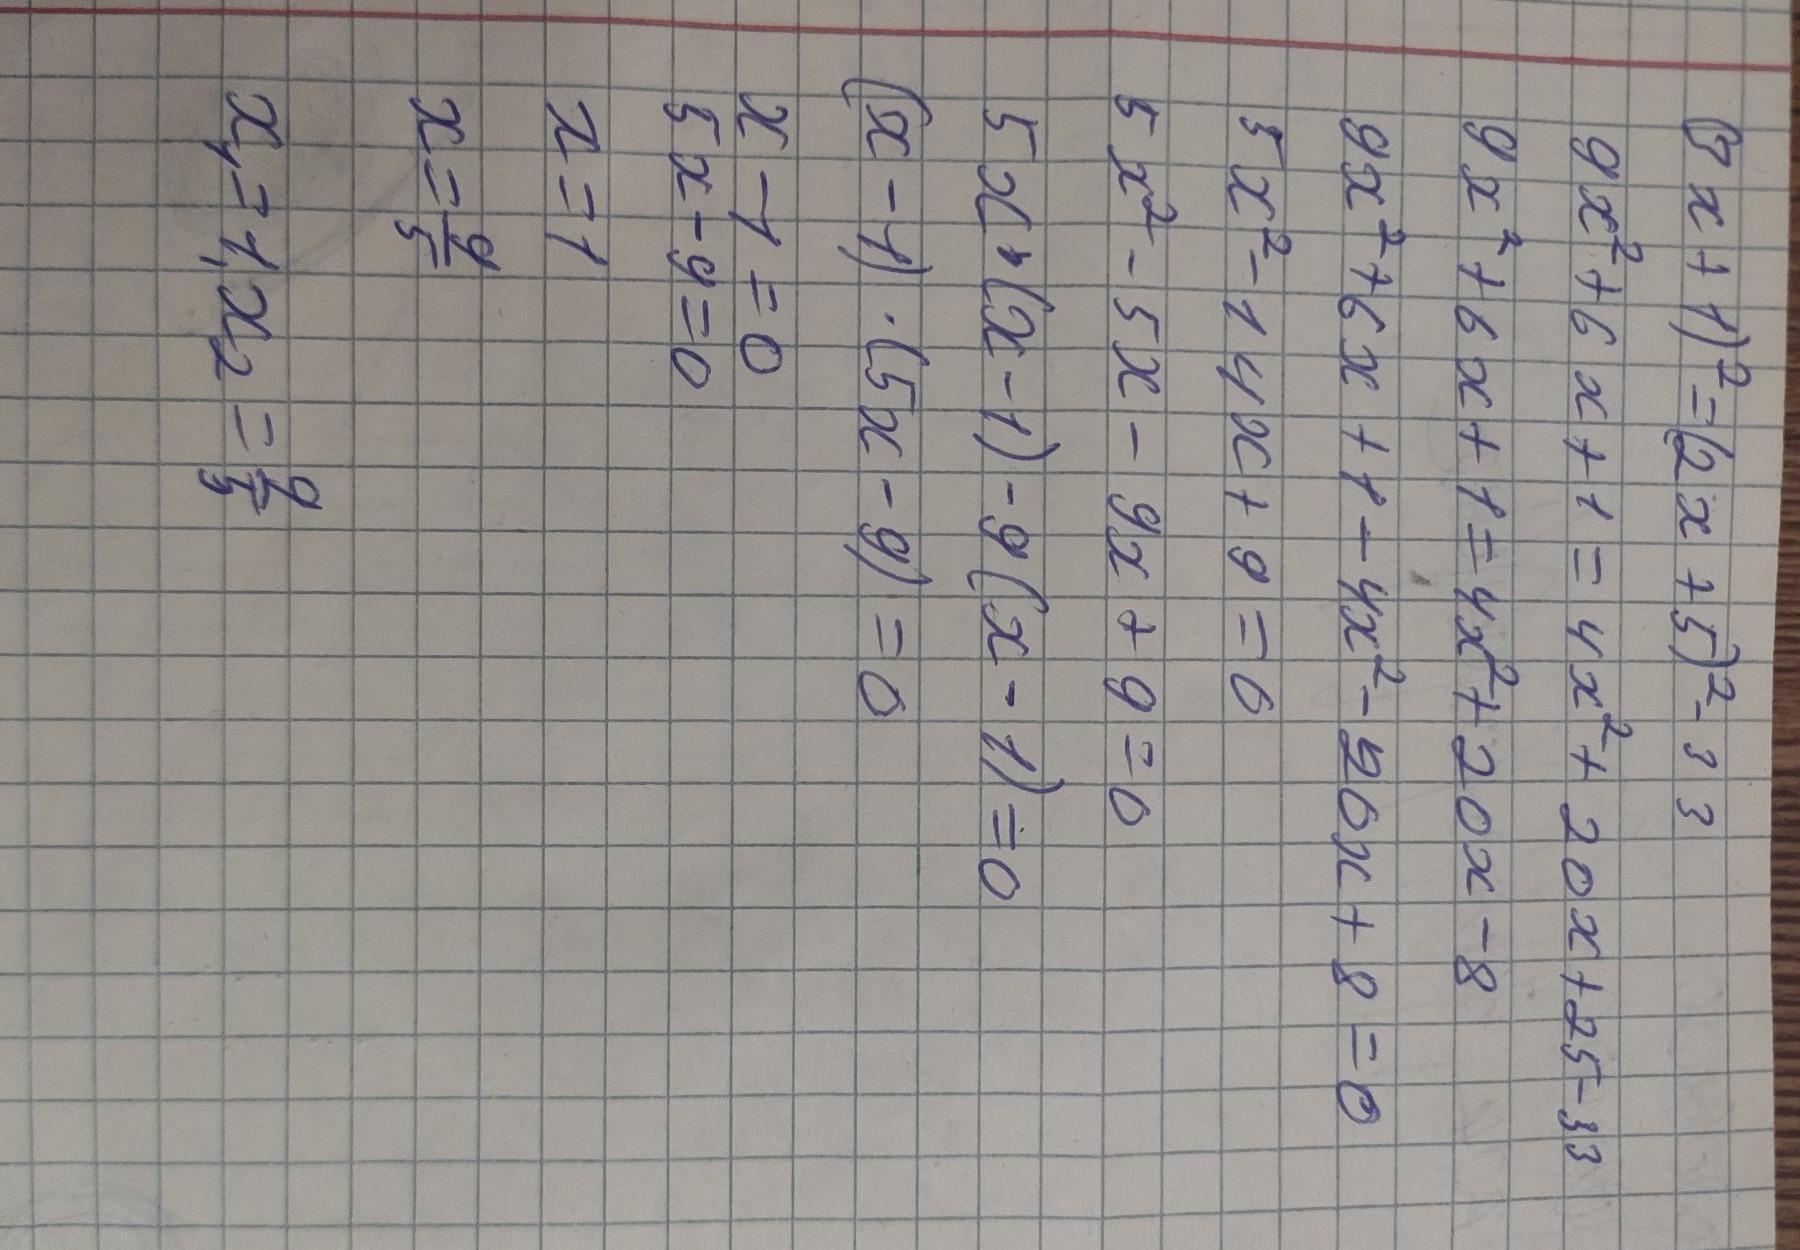 (3x+1)²=(2x+5)²-33
9x²+6x+1=4x²+20x+25-33
9x²+6x+1=4x²+20x-8
9x²+6x+1-4x²-20x+8=0
5x²-14x+9=0
5x²-5x-9x+9=0
5x·(x-1)-9(x-1)=0
(x-1)·(5x-9)=0
x-1=0
5x-9=0
x=1
x=9/5
x₁=1, x₂=9/5